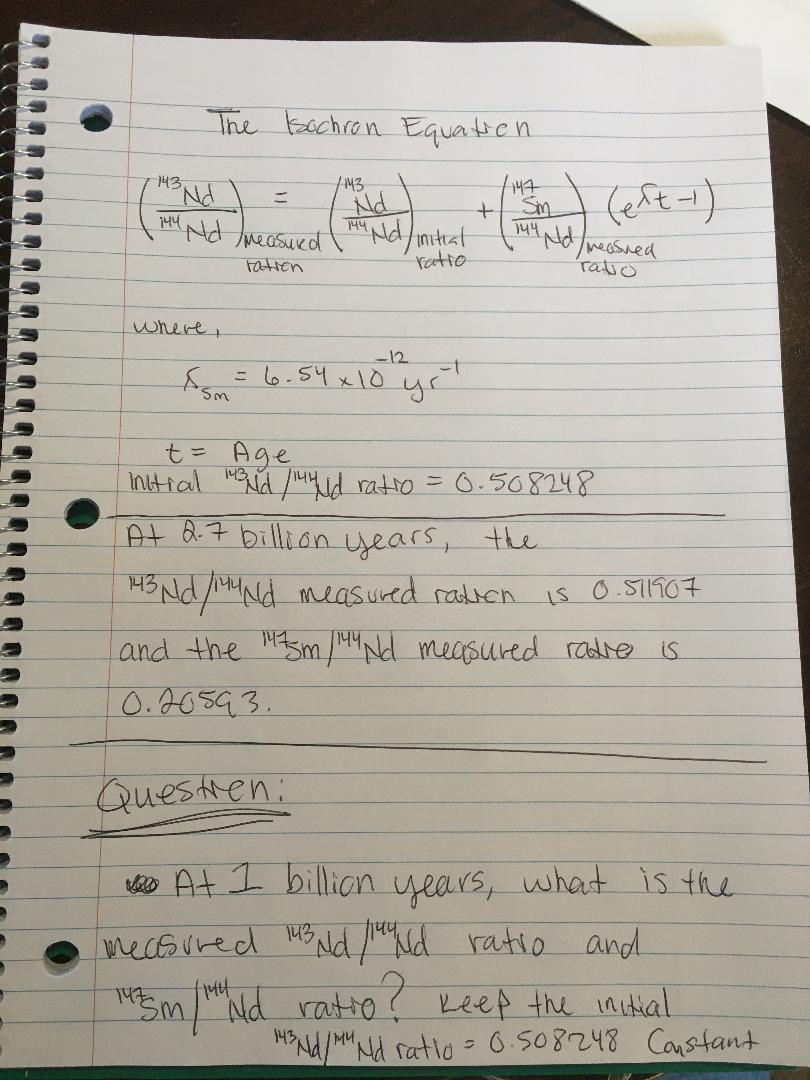 The Isochron Equation
(¹⁴³Nd/¹⁴⁴Nd)measured ration = (¹⁴³Nd/¹⁴⁴Nd)initial ratio + (¹⁴⁷Sm/¹⁴⁴Nd)measured ratio (e^λt -1)
where,
λSm = 6.54 x10⁻¹² yr⁻¹
t = Age
Initial ¹⁴³Nd/¹⁴⁴Nd ratio = 0.508248
At 2.7 billion years, the
¹⁴³Nd/¹⁴⁴Nd measured ration is 0.511907
and the ¹⁴⁷Sm/¹⁴⁴Nd measured ratio is
0.20593.
Question:
At 1 billion years, what is the
measured ¹⁴³Nd/¹⁴⁴Nd ratio and
¹⁴⁷Sm/¹⁴⁴Nd ratio? Keep the initial
¹⁴³Nd/¹⁴⁴Nd ratio = 0.508248 Constant